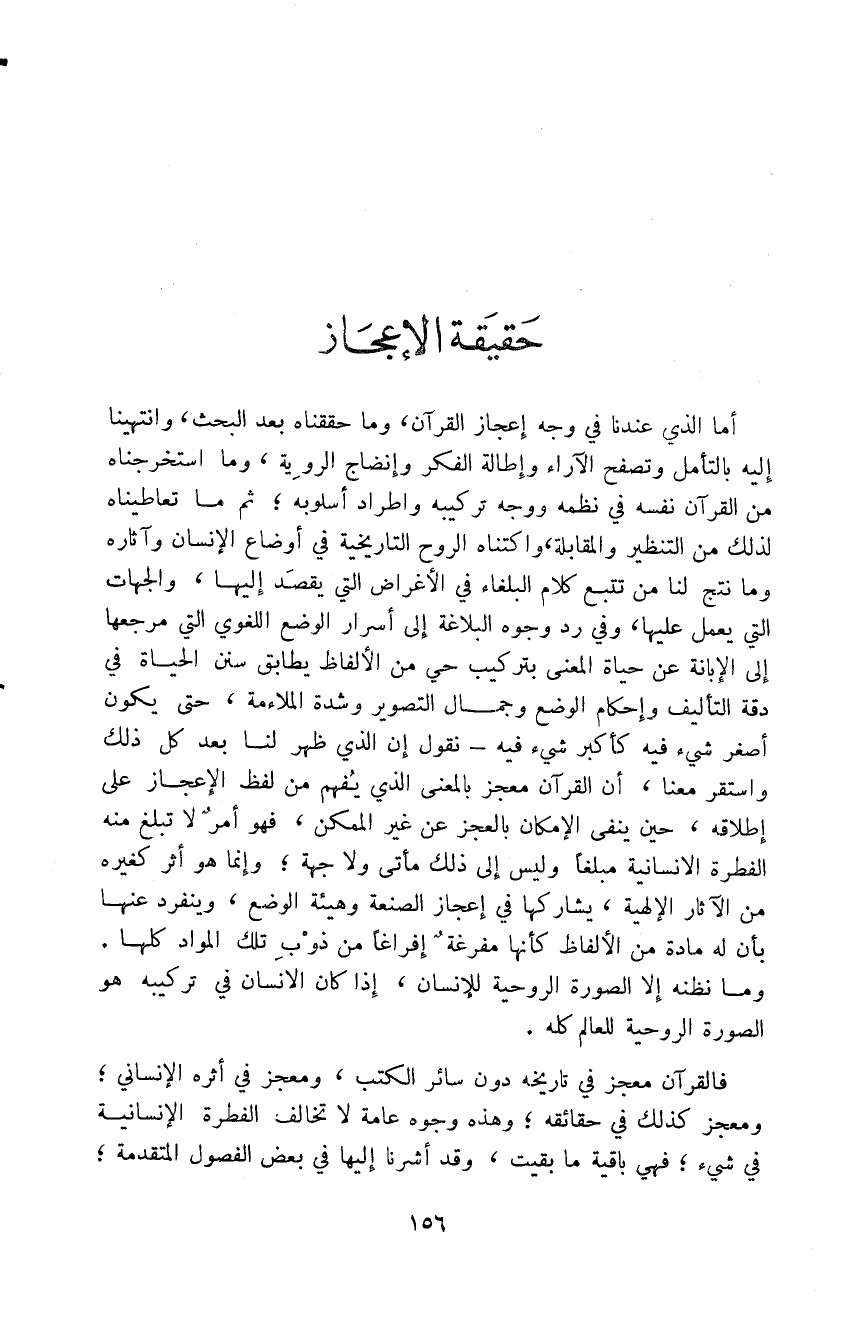 حَقيقَة الإعجَاز
أما الذي عندنا في وجه إعجاز القرآن، وما حققناه بعد البحث، وانتهينا
إليه بالتأمل وتصفح الآراء وإطالة الفكر وإنضاج الرويِة ، وما استخرجناه
من القرآن نفسه في نظمه ووجه تركيبه واطراد أسلوبه ؛ ثم ما تعاطيناه
لذلك من التنظير والمقابلة،واكتناه الروح التاريخية في أوضاع الإنسان وآثاره
وما نتج لنا من تتبع كلام البلغاء في الأغراض التي يقصَد إليها ، والجهات
التي يعمل عليها، وفي رد وجوه البلاغة إلى أسرار الوضع اللغوي التي مرجعها
إلى الإبانة عن حياة المعنى بتركيب حي من الألفاظ يطابق سنن الحياة في
دقة التأليف وإحكام الوضع وجمال التصوير وشدة الملاءمة ، حتى يكون
أصغر شيء فيه كأكبر شيء فيه – نقول إن الذي ظهر لنا بعد كل ذلك
واستقر معنا ، أن القرآن معجز بالمعنى الذي يُفهم من لفظ الإعجاز على
إطلاقه ، حين ينفى الإمكان بالعجز عن غير الممكن ، فهو أمرٌ لا تبلغ منه
الفطرة الانسانية مبلغاً وليس إلى ذلك مأتى ولا جهة ؛ وإنما هو أثر كغيره
من الآثار الإلهية ، يشاركها في إعجاز الصنعة وهيئة الوضع ، وينفرد عنها
بأن له مادة من الألفاظ كأنها مفرغةٌ إفراغاً من ذوْبِ تلك المواد كلها .
وما نظنه إلا الصورة الروحية للإنسان ، إذا كان الانسان في تركيبه هو
الصورة الروحية للعالم كله .
فالقرآن معجز في تاريخه دون سائر الكتب ، ومعجز في أثره الإنساني ؛
ومعجز كذلك في حقائقه ؛ وهذه وجوه عامة لا تخالف الفطرة الإنسانية
في شيء ؛ فهي باقية ما بقيت ، وقد أشرنا إليها في بعض الفصول المتقدمة ؛
١٥٦